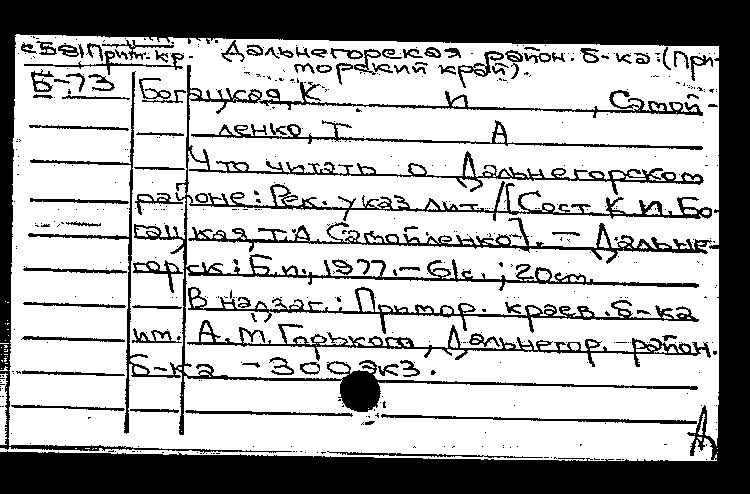 Дальнегорская район. б-ка: (При-
«Б8) Прим. кр. морский край).
Б-73 Богацкая, К И , Самой-
ленко, Т А
Что читать о Дальнегорском
районе: Рек. указ. лит. /[Сост. К. И. Бо-
гацкая, Т. А. Самойленко]. — Дальне-
горск: Б. и., 1977. — 61 с. ; 20 см.
В надзаг.: Примор. краев. б-ка
им. А. М. Горького, Дальнегор. район.
б-ка. — 300 экз.